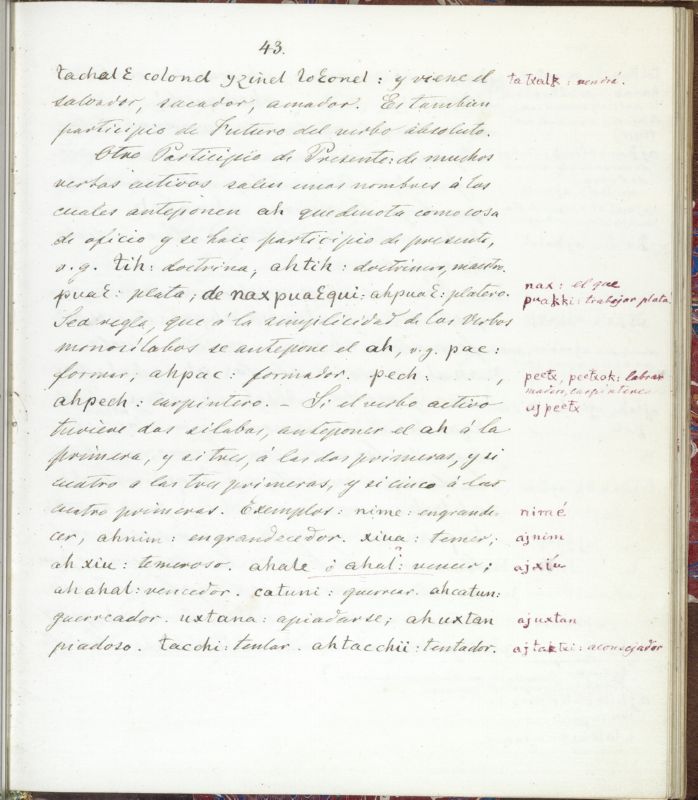 43.
tachalꜪ colonel yziñel loꜪonel: y viene el
ta txalk: vendrá.
salvador, sacador, amador. Es tambien
participio de Futuro del verbo absoluto.
Otro Participio de Presente: de muchos
verbos activos salen unos nombres á los
cuales anteponen ah que denota como cosa
de oficio y se hace participio de presente,
v.g. tih: doctrina; ahtih: doctrinero, maestro.
puaꜪ: plata; de nax puaꜪqui: ahpuaꜪ: platero.
nax: el que
puakki: trabajar plata
Sea regla, que á la simplicidad de los Verbos
monosílabos se antepone el ah, v.g. pac:
formar; ahpac: formador. pech: . . . . ,
peetx, peetxok: labrar
madera, carpintero
ahpech: carpintero. Si el verbo activo
ajpeetx
tuviere dos silabas, anteponer el ah á la
primera, y si tres, á las dos primeras, y si
cuatro a las tres primeras, y si cinco á las
cuatro primeras. Exemplos: nime: engrande-
niraé
cer, ahnim: engrandecedor. xiua: temer;
ajnim
ah xiu: temeroso. ahale ó ahal: vencer;
?
ajxiu
ah ahal: vencedor. catuni: guerrear. ahcatun:
guerreador. uxtana: apiadarse; ahuxtan
ajuxtan
piadoso. tacchi: tentar. ahtacchii: tentador.
ajtaktxi: aconsejador